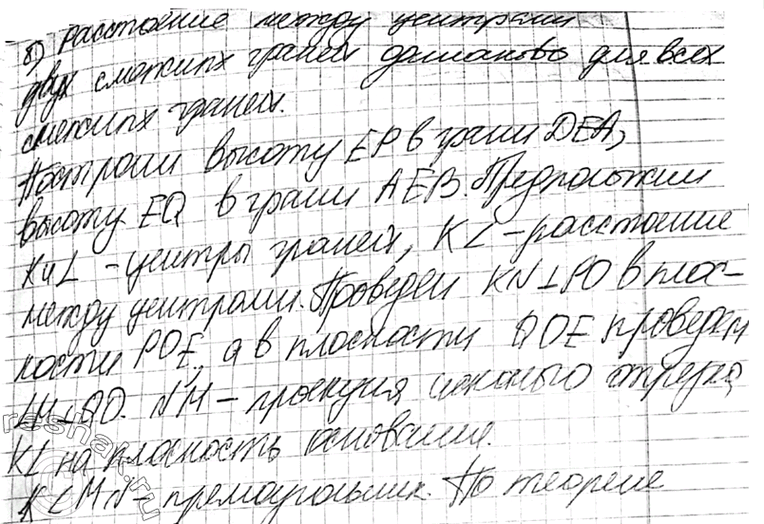 в) Расстояние между центрами
двух смежных граней одинаково для всех
смежных граней.
Построим высоту EP в грани DEA,
высоту EQ в грани AEB. Предположим
K и L - центры граней, KL - расстояние
между центрами. Проведем KN⊥PO в плос-
кости POE, а в плоскости QOE проведем
LM⊥QO. NM - проекция искомого отрезка
KL на плоскость основания.
KLMN - прямоугольник. По теореме
reshak.ru